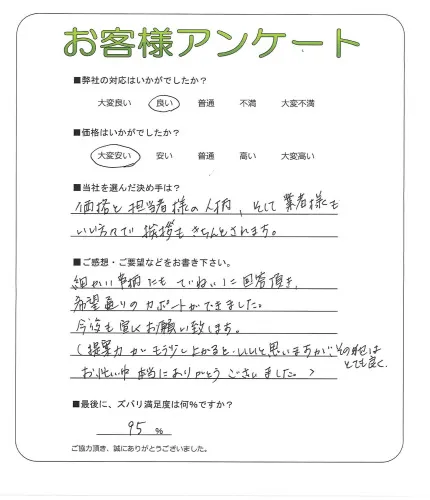 お客様アンケート
■弊社の対応はいかがでしたか?
大変良い 良い 普通 不満 大変不満
■価格はいかがでしたか?
大変安い 安い 普通 高い 大変高い
■当社を選んだ決め手は?
価格と担当者様の人柄、そして業者様も
いい方々で挨拶もきちんとされます。
■ご感想・ご要望などをお書き下さい。
細かい事柄にもていねいに回答頂き、
希望通りのカポートができました。
今後も宜しくお願い致します。
(提案力がもう少し上がるといいと思いますが、その他は
とても良く
お忙い中本当にありがとうございました。)
■最後に、ズバリ満足度は何%ですか?
95 %
ご協力頂き、誠にありがとうございました。